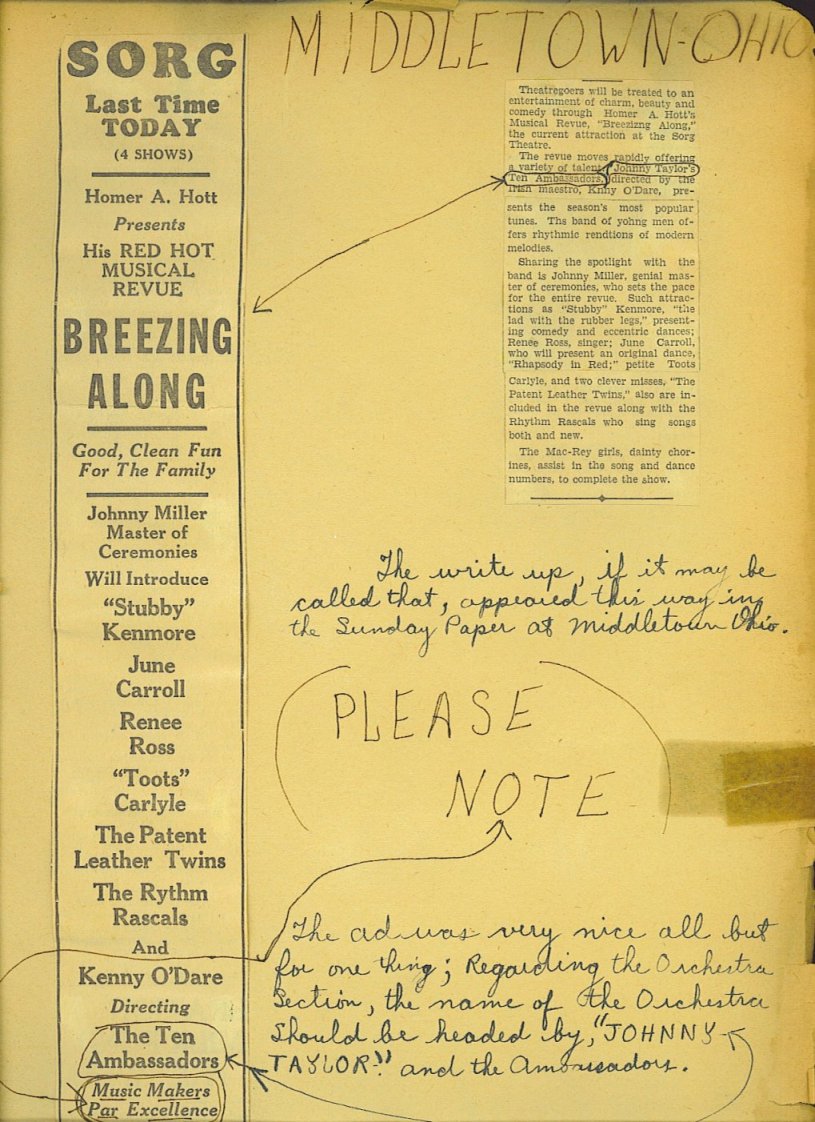 MIDDLETOWN-OHIO.
SORG
Last Time
TODAY
(4 SHOWS)
Homer A. Hott
Presents
His RED HOT
MUSICAL
REVUE
BREEZING
ALONG
Good, Clean Fun
For The Family
Johnny Miller
Master of
Ceremonies
Will Introduce
"Stubby"
Kenmore
June
Carroll
Renee
Ross
"Toots"
Carlyle
The Patent
Leather Twins
The Rythm
Rascals
And
Kenny O'Dare
Directing
The Ten
Ambassadors
Music Makers
Par Excellence
Theatregoers will be treated to an
entertainment of charm, beauty and
comedy through Homer A. Hott's
Musical Revue, "Breezizng Along,"
the current attraction at the Sorg
Theatre.
The revue moves rapidly offering
a variety of talent. Johnny Taylor's
Ten Ambassadors, directed by the
Irish maestro, Knny O'Dare, pre-
sents the season's most popular
tunes. Ths band of yohng men of-
fers rhythmic rendtions of modern
melodies.
Sharing the spotlight with the
band is Johnny Miller, genial mas-
ter of ceremonies, who sets the pace
for the entire revue. Such attrac-
tions as "Stubby" Kenmore, "the
lad with the rubber legs," present-
ing comedy and eccentric dances;
Renee Ross, singer; June Carroll,
who will present an original dance,
"Rhapsody in Red;" petite Toots
Carlyle, and two clever misses, "The
Patent Leather Twins," also are in-
cluded in the revue along with the
Rhythm Rascals who sing songs
both and new.
The Mac-Rey girls, dainty chor-
ines, assist in the song and dance
numbers, to complete the show.
The write up, if it may be
called that, appeared this way in
the Sunday Paper at Middletown Ohio.
(PLEASE
NOTE)
The ad was very nice all but
for one thing; Regarding the Orchestra
Section, the name of the Orchestra
Should be headed by, "JOHNNY
TAYLOR." and the Ambassadors.